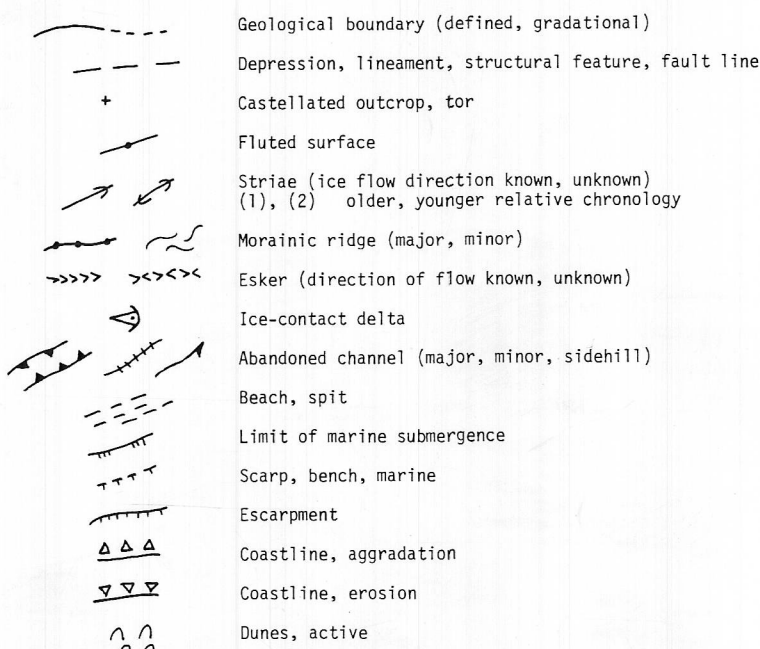 Geological boundary (defined, gradational)
Depression, lineament, structural feature, fault line
Castellated outcrop, tor
Fluted surface
Striae (ice flow direction known, unknown)
(1), (2) older, younger relative chronology
Morainic ridge (major, minor)
Esker (direction of flow known, unknown)
Ice-contact delta
Abandoned channel (major, minor, sidehill)
Beach, spit
Limit of marine submergence
Scarp, bench, marine
Escarpment
Coastline, aggradation
Coastline, erosion
Dunes, active